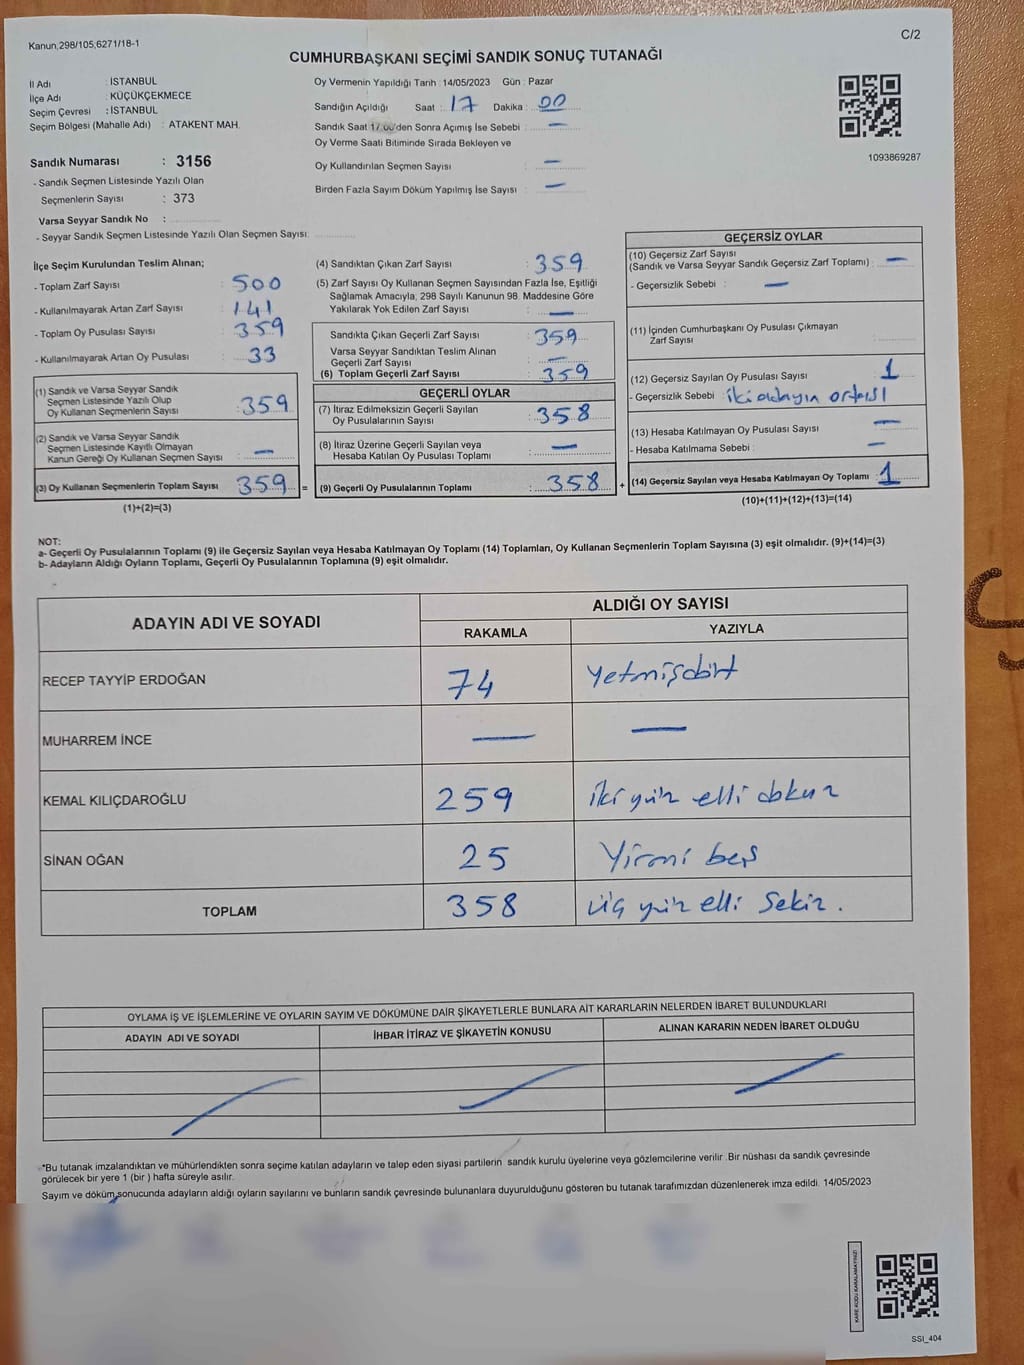 Kanun,298/105,6271/18-1
C/2
CUMHURBAŞKANI SEÇİMİ SANDIK SONUÇ TUTANAĞI
İl Adı : İSTANBUL
İlçe Adı : KÜÇÜKÇEKMECE
Seçim Çevresi : İSTANBUL
Seçim Bölgesi (Mahalle Adı) : ATAKENT MAH.
Sandık Numarası : 3156
- Sandık Seçmen Listesinde Yazılı Olan
Seçmenlerin Sayısı : 373
Varsa Seyyar Sandık No :
- Seyyar Sandık Seçmen Listesinde Yazılı Olan Seçmen Sayısı:
Oy Vermenin Yapıldığı Tarih :14/05/2023 Gün : Pazar
Sandığın Açıldığı Saat : 17 Dakika : 00
Sandık Saat 17.00'den Sonra Açımış İse Sebebi : —
Oy Verme Saati Bitiminde Sırada Bekleyen ve
Oy Kullandırılan Seçmen Sayısı : —
Birden Fazla Sayım Döküm Yapılmış İse Sayısı : —
1093869287
İlçe Seçim Kurulundan Teslim Alınan;
- Toplam Zarf Sayısı : 500
- Kullanılmayarak Artan Zarf Sayısı : 141
- Toplam Oy Pusulası Sayısı : 359
- Kullanılmayarak Artan Oy Pusulası : 33
(1) Sandık ve Varsa Seyyar Sandık
Seçmen Listesinde Yazılı Olup
Oy Kullanan Seçmenlerin Sayısı : 359
(2) Sandık ve Varsa Seyyar Sandık
Seçmen Listesinde Kayıtlı Olmayan
Kanun Gereği Oy Kullanan Seçmen Sayısı : —
(3) Oy Kullanan Seçmenlerin Toplam Sayısı : 359 =
(1)+(2)=(3)
(4) Sandıktan Çıkan Zarf Sayısı : 359
(5) Zarf Sayısı Oy Kullanan Seçmen Sayısından Fazla İse, Eşitliği
Sağlamak Amacıyla; 298 Sayılı Kanunun 98. Maddesine Göre
Yakılarak Yok Edilen Zarf Sayısı : —
Sandıkta Çıkan Geçerli Zarf Sayısı : 359
Varsa Seyyar Sandıktan Teslim Alınan
Geçerli Zarf Sayısı : —
(6) Toplam Geçerli Zarf Sayısı : 359
GEÇERLİ OYLAR
(7) İtiraz Edilmeksizin Geçerli Sayılan
Oy Pusulalarının Sayısı : 358
(8) İtiraz Üzerine Geçerli Sayılan veya
Hesaba Katılan Oy Pusulası Toplamı : —
(9) Geçerli Oy Pusulalarının Toplamı : 358 +
GEÇERSİZ OYLAR
(10) Geçersiz Zarf Sayısı
(Sandık ve Varsa Seyyar Sandık Geçersiz Zarf Toplamı) : —
- Geçersizlik Sebebi : —
(11) İçinden Cumhurbaşkanı Oy Pusulası Çıkmayan
Zarf Sayısı :
(12) Geçersiz Sayılan Oy Pusulası Sayısı : 1
- Geçersizlik Sebebi : iki adayın ortası
(13) Hesaba Katılmayan Oy Pusulası Sayısı : —
- Hesaba Katılmama Sebebi : —
(14) Geçersiz Sayılan veya Hesaba Katılmayan Oy Toplamı : 1
(10)+(11)+(12)+(13)=(14)
NOT:
a- Geçerli Oy Pusulalarının Toplamı (9) ile Geçersiz Sayılan veya Hesaba Katılmayan Oy Toplamı (14) Toplamları, Oy Kullanan Seçmenlerin Toplam Sayısına (3) eşit olmalıdır. (9)+(14)=(3)
b- Adayların Aldığı Oyların Toplamı, Geçerli Oy Pusulalarının Toplamına (9) eşit olmalıdır.
ADAYIN ADI VE SOYADI
ALDIĞI OY SAYISI
RAKAMLA YAZIYLA
RECEP TAYYİP ERDOĞAN 74 Yetmişdört
MUHARREM İNCE — —
KEMAL KILIÇDAROĞLU 259 iki yüz elli dokuz
SİNAN OĞAN 25 Yirmi beş
TOPLAM 358 üç yüz elli Sekiz.
OYLAMA İŞ VE İŞLEMLERİNE VE OYLARIN SAYIM VE DÖKÜMÜNE DAİR ŞİKAYETLERLE BUNLARA AİT KARARLARIN NELERDEN İBARET BULUNDUKLARI
ADAYIN ADI VE SOYADI İHBAR İTİRAZ VE ŞİKAYETİN KONUSU ALINAN KARARIN NEDEN İBARET OLDUĞU
*Bu tutanak imzalandıktan ve mühürlendikten sonra seçime katılan adayların ve talep eden siyasi partilerin sandık kurulu üyelerine veya gözlemcilerine verilir .Bir nüshası da sandık çevresinde
görülecek bir yere 1 (bir ) hafta süreyle asılır.
Sayım ve döküm sonucunda adayların aldığı oyların sayılarını ve bunların sandık çevresinde bulunanlara duyurulduğunu gösteren bu tutanak tarafımızdan düzenlenerek imza edildi. 14/05/2023
KARE KODU KARALAMAYINIZ!
SSI_404